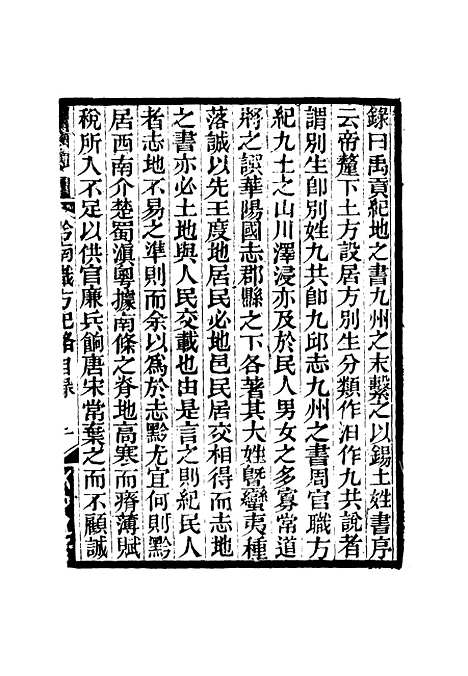 錄曰禹貢紀地之書九州之末繫之以錫土姓書序
云帝釐下土方設居方別生分類作汩作九共說者
謂別生卽別姓九共卽九丘志九州之書周官職方
紀九土之山川澤浸亦及於民人男女之多寡常道
將之譔華陽國志郡縣之下各著其大姓曁蠻夷種
落誠以先王度地居民必地邑民居交相得而志地
之書亦必土地與人民交載也由是言之則紀民人
者志地不易之準則而余以爲於志黔尤宜何則黔
居西南介楚蜀滇粵據南條之脊地高寒而瘠薄賦
稅所入不足以供官廉兵餉唐宋常棄之而不顧誠
黔南職方紀略目錄